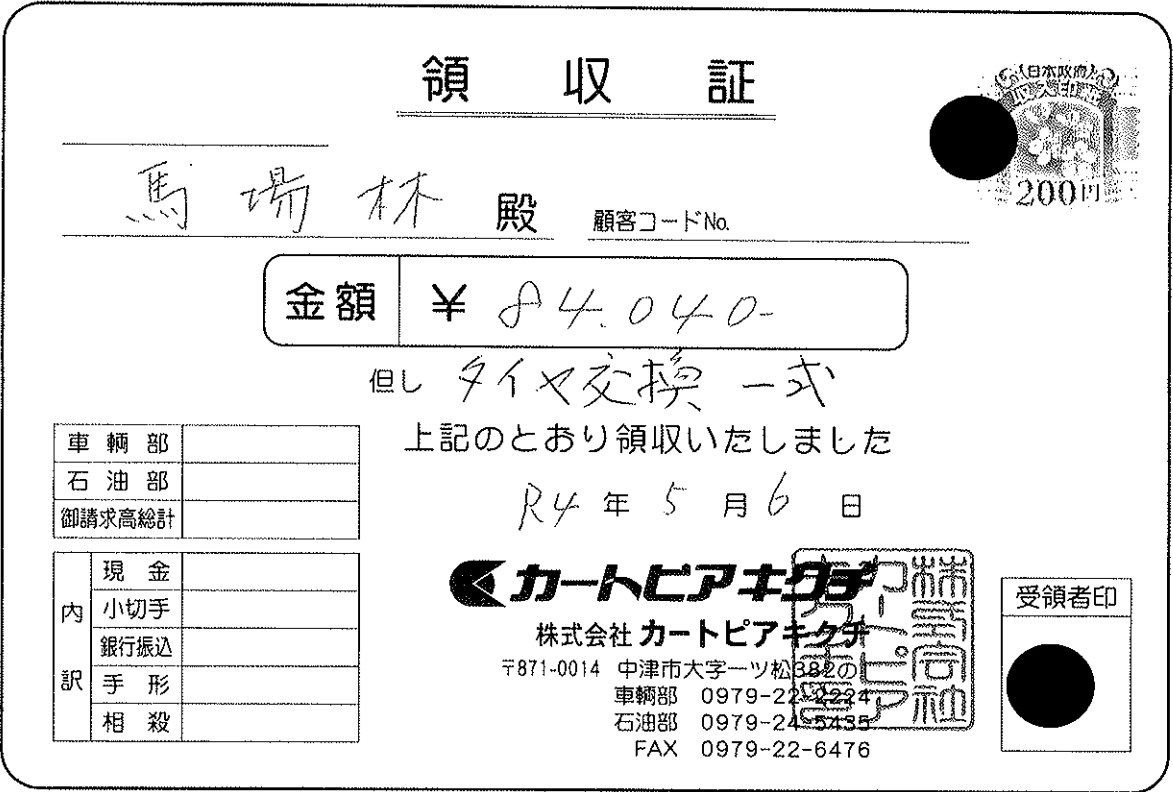 領収証
日本政府
収入印紙
200円
馬場林 殿 顧客コードNo.
金額 ¥ 84.040-
但し タイヤ交換 一式
上記のとおり領収いたしました
R4年5月6日
車輌部
石油部
御請求高総計
内訳
現金
小切手
銀行振込
手形
相殺
カートピアキクチ
株式会社 カートピアキクチ
〒871-0014 中津市大字一ツ松382の
車輌部 0979-22-2224
石油部 0979-24-5435
FAX 0979-22-6476
受領者印